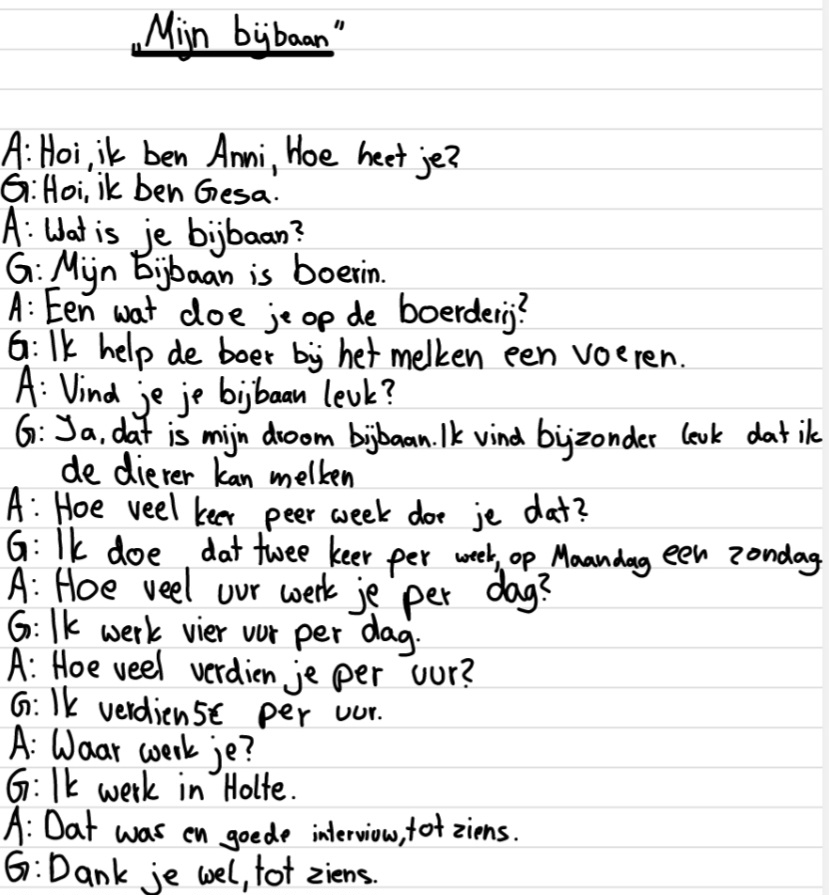 „Mijn bijbaan"
A: Hoi, ik ben Anni, Hoe heet je?
G: Hoi, ik ben Gesa.
A: Wat is je bijbaan?
G: Mijn bijbaan is boerin.
A: Een wat doe je op de boerderij?
G: Ik help de boer bij het melken een voeren.
A: Vind je je bijbaan leuk?
G: Ja, dat is mijn droom bijbaan. Ik vind bijzonder leuk dat ik
de dierer kan melken
A: Hoe veel keer peer week doe je dat?
G: Ik doe dat twee keer per week, op Maandag een zondag
A: Hoe veel uur werk je per dag?
G: Ik werk vier uur per dag.
A: Hoe veel verdien je per uur?
G: Ik verdien 5€ per uur.
A: Waar werk je?
G: Ik werk in Holte.
A: Dat was en goede interviuw, tot ziens.
G: Dank je wel, tot ziens.